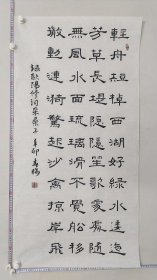 輕舟短棹西湖好綠水逶迤
芳草長堤隱隱笙歌處處隨
無風水面琉璃滑不覺船移
微動漣漪驚起沙禽掠岸飛
錄歐陽修詞采桑子